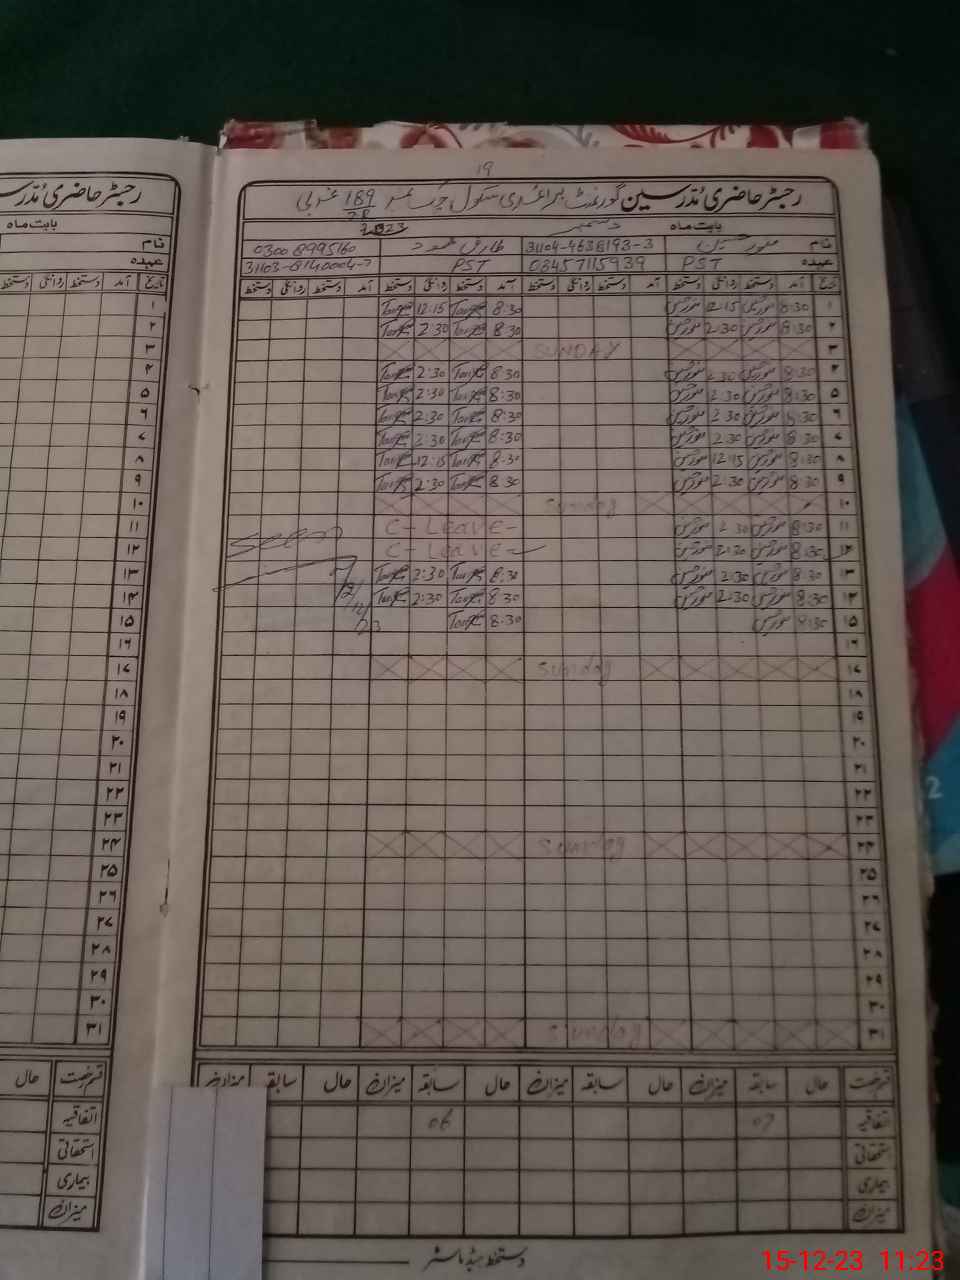 19
رجسٹر حاضری مُدرسین گورنمنٹ پرائمری سکول چک نمبر 189 غربی
بابت ماہ دسمبر 2023
نام 31104-4638193-3 طارق محمود 03008995160
عہدہ PST 03457115939 PST 31103-8140004-7
تاریخ آمد دستخط روانگی دستخط آمد دستخط روانگی دستخط آمد دستخط روانگی دستخط آمد دستخط روانگی دستخط
۱ 8:30 12:15 8:30 Tariq 12:15 Tariq
۲ 8:30 2:30 8:30 Tariq 2:30 Tariq
۳ SUNDAY
۴ 8:30 2:30 8:30 Tariq 2:30 Tariq
۵ 8:30 2:30 8:30 Tariq 2:30 Tariq
۶ 8:30 2:30 8:30 Tariq 2:30 Tariq
۷ 8:30 2:30 8:30 Tariq 2:30 Tariq
۸ 8:30 12:15 8:30 Tariq 12:15 Tariq
۹ 8:30 2:30 8:30 Tariq 2:30 Tariq
۱۰ Sunday
۱۱ 8:30 2:30 C-Leave-
۱۲ 8:30 2:30 C-Leave- Seen
۱۳ 8:30 2:30 8:30 Tariq 2:30 Tariq
۱۴ 8:30 2:30 8:30 Tariq 2:30 Tariq 12/12/23
۱۵ 8:30 8:30 Tariq
۱۶
۱۷ Sunday
۱۸
۱۹
۲۰
۲۱
۲۲
۲۳
۲۴ Sunday
۲۵
۲۶
۲۷
۲۸
۲۹
۳۰
۳۱ Sunday
قسم رخصت حال سابقہ میزان حال سابقہ میزان حال سابقہ میزان حال سابقہ میزان
اتفاقیہ 07 06
استحقاقی
بیماری
میزان
دستخط ہیڈ ماسٹر
رجسٹر حاضری مُدرس
بابت ماہ
نام
عہدہ
تاریخ آمد دستخط روانگی دستخط
۱
۲
۳
۴
۵
۶
۷
۸
۹
۱۰
۱۱
۱۲
۱۳
۱۴
۱۵
۱۶
۱۷
۱۸
۱۹
۲۰
۲۱
۲۲
۲۳
۲۴
۲۵
۲۶
۲۷
۲۸
۲۹
۳۰
۳۱
قسم رخصت حال
اتفاقیہ
استحقاقی
بیماری
میزان
2
15-12-23 11:23